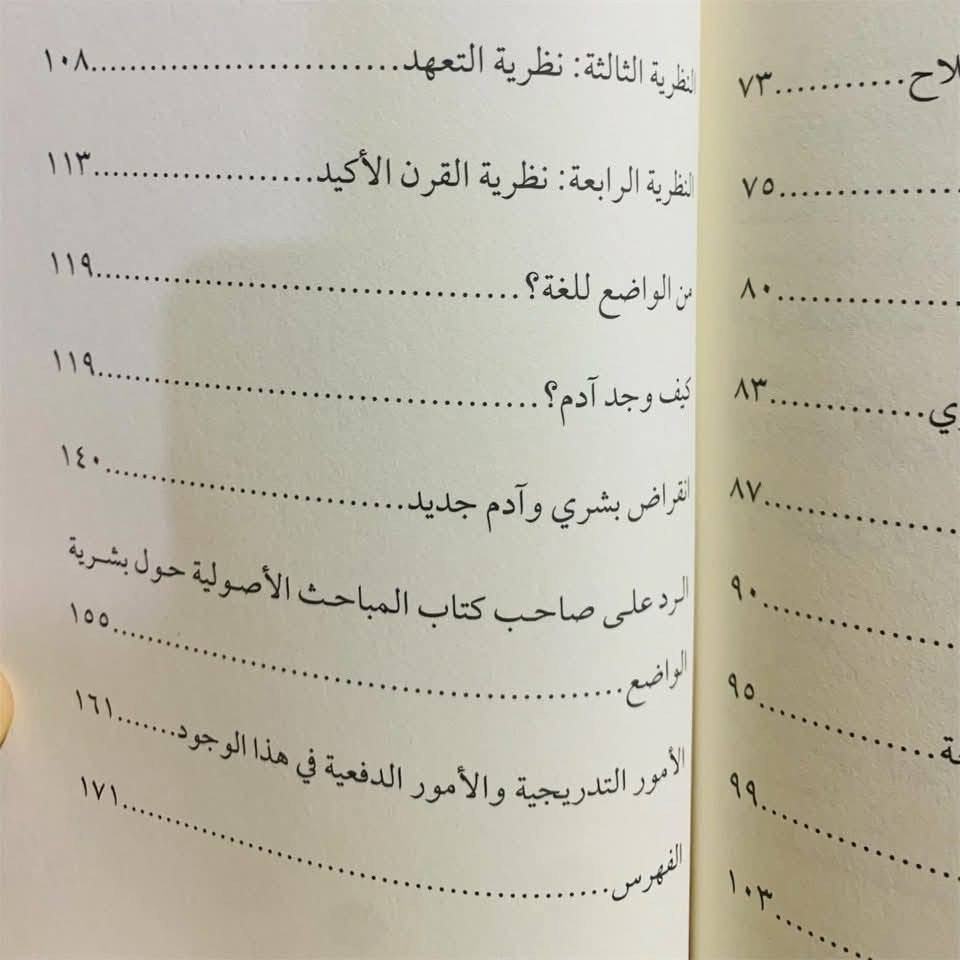 لاح..........٧٣
٧٥
٨٠
ي..........٨٣
٨٧
٩٠
ة..........٩٥
٩٩
١٠٣
النظرية الثالثة: نظرية التعهد..........١٠٨
النظرية الرابعة: نظرية القرن الأكيد..........١١٣
من الواضع للغة؟..........١١٩
كيف وجد آدم؟..........١١٩
انقراض بشري وآدم جديد..........١٤٠
الرد على صاحب كتاب المباحث الأصولية حول بشرية
الواضع..........١٥٥
الأمور التدريجية والأمور الدفعية في هذا الوجود.......١٦١
الفهرس..........١٧١